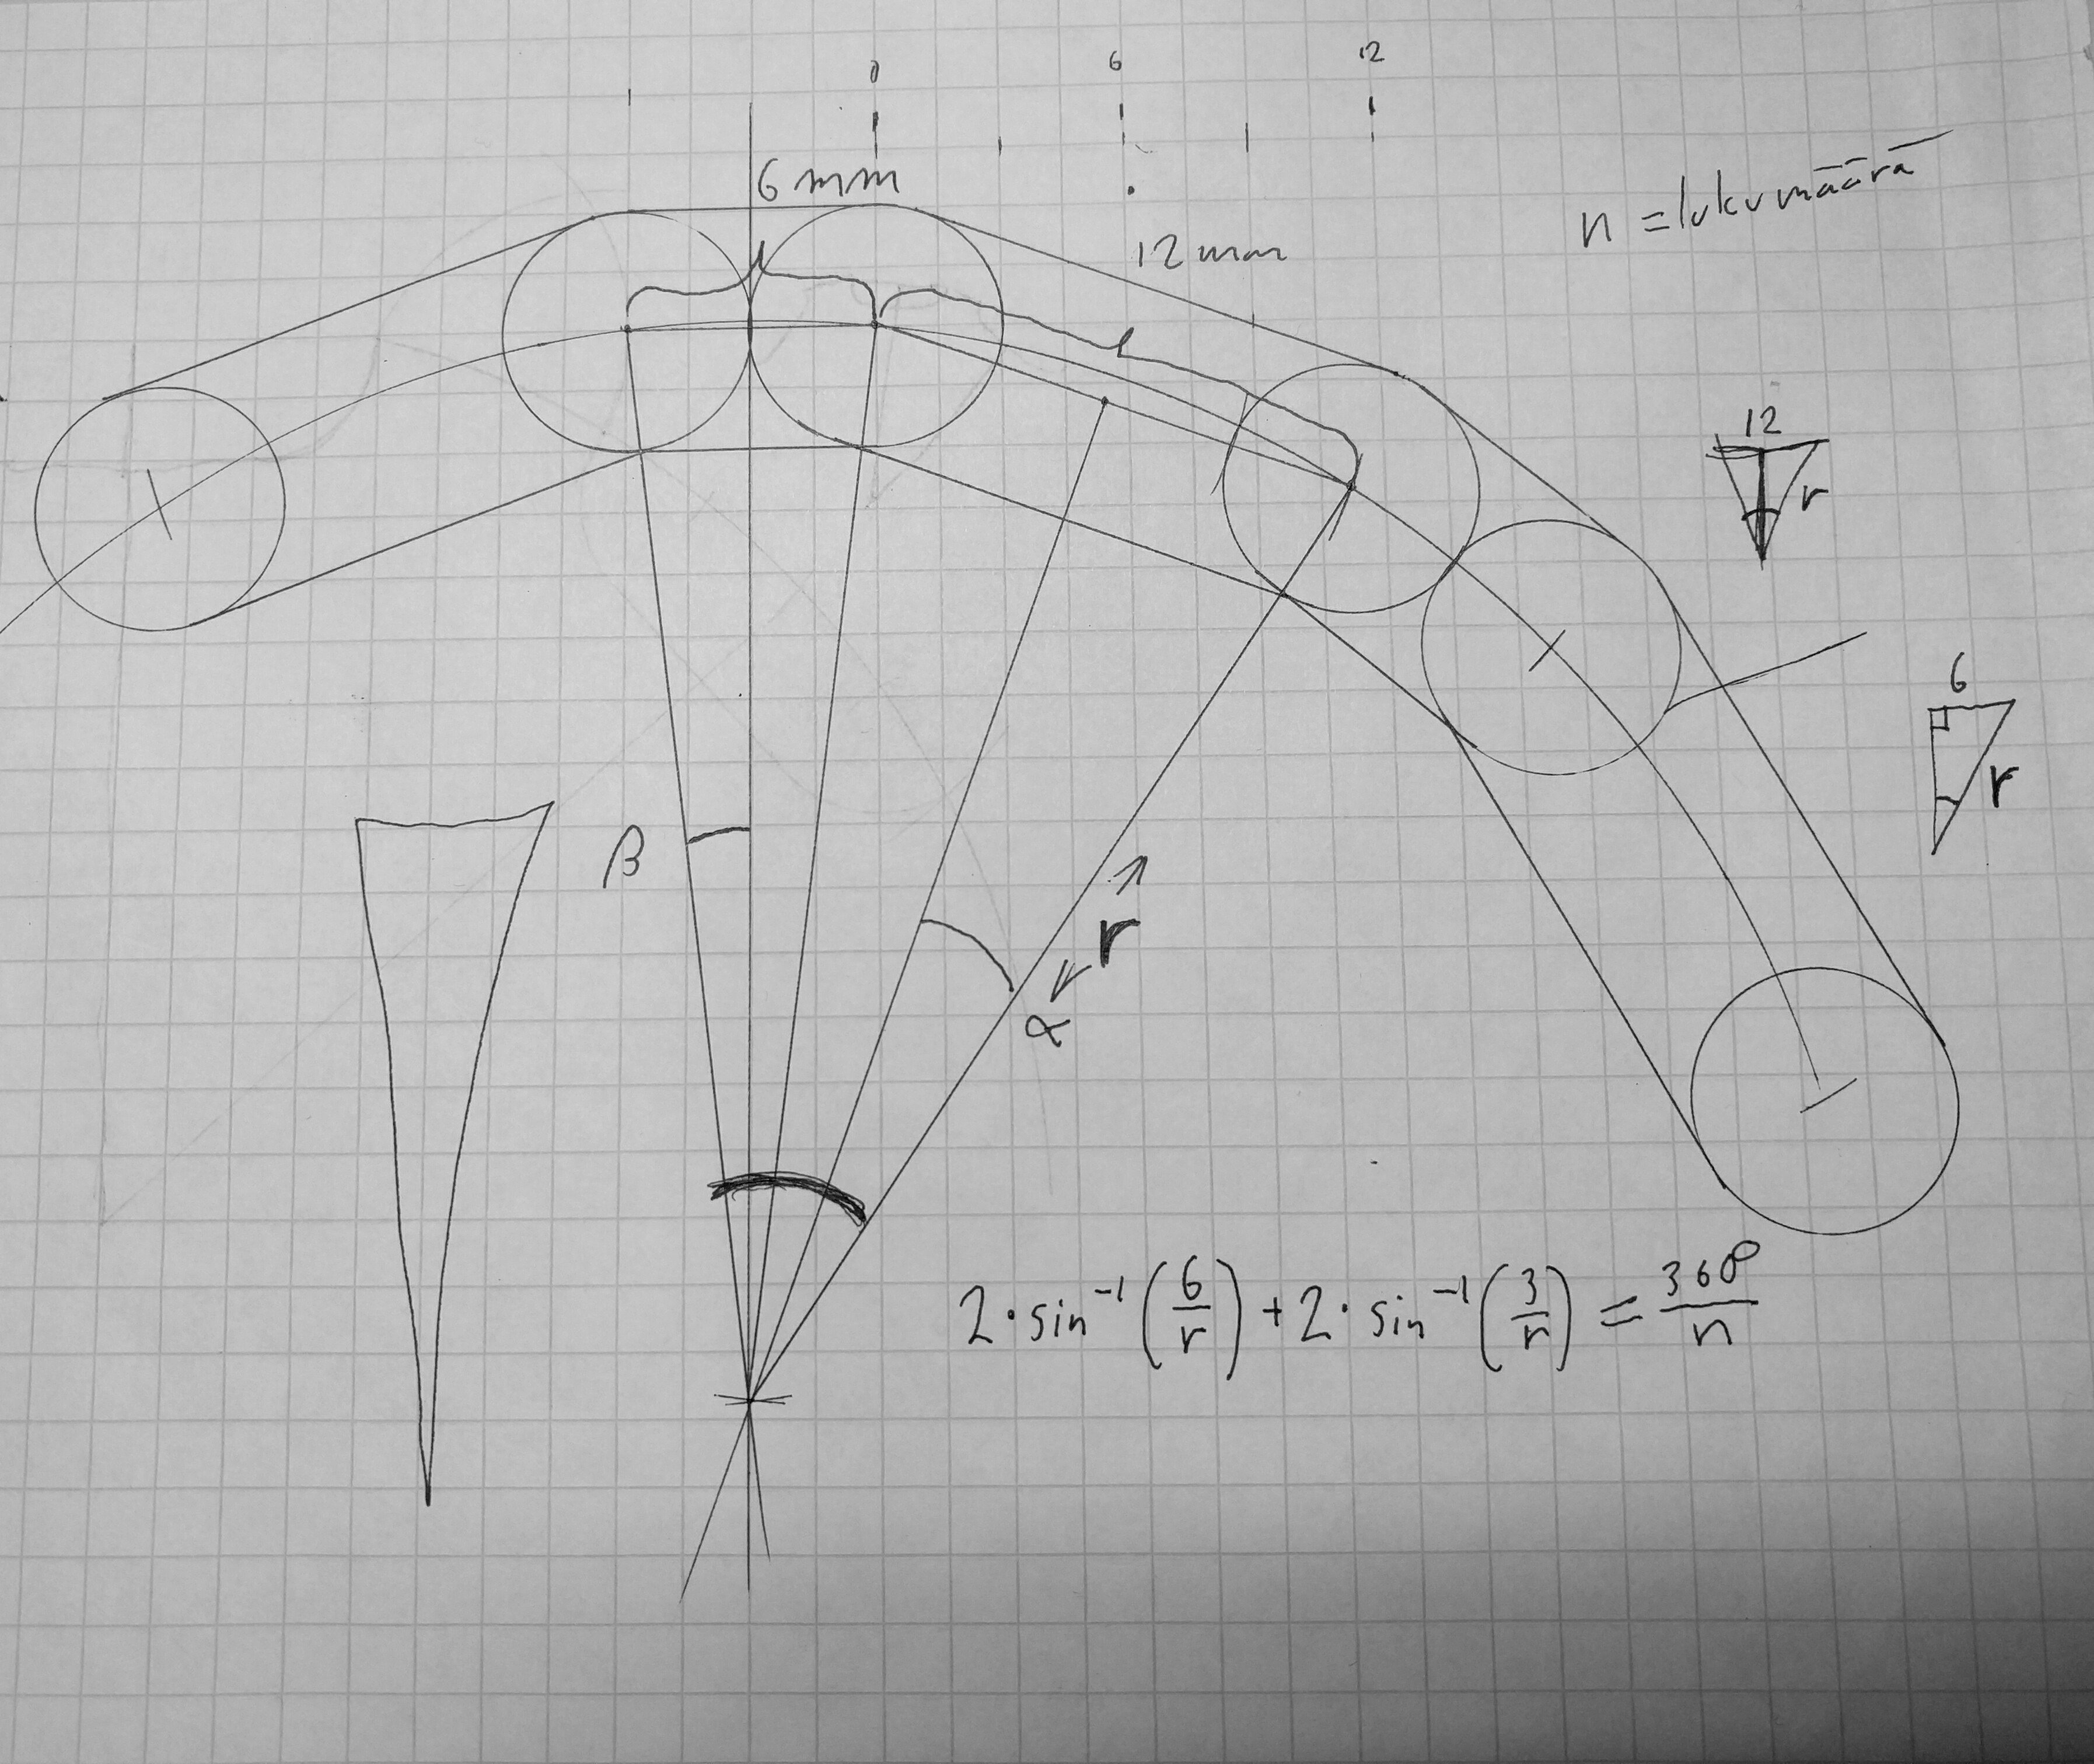 0 6 12
6 mm
12 mm
n = lukumäärä
12
r
6
r
β
r
α
2 · sin⁻¹ (6/r) + 2 · sin⁻¹ (3/r) = 360°/n